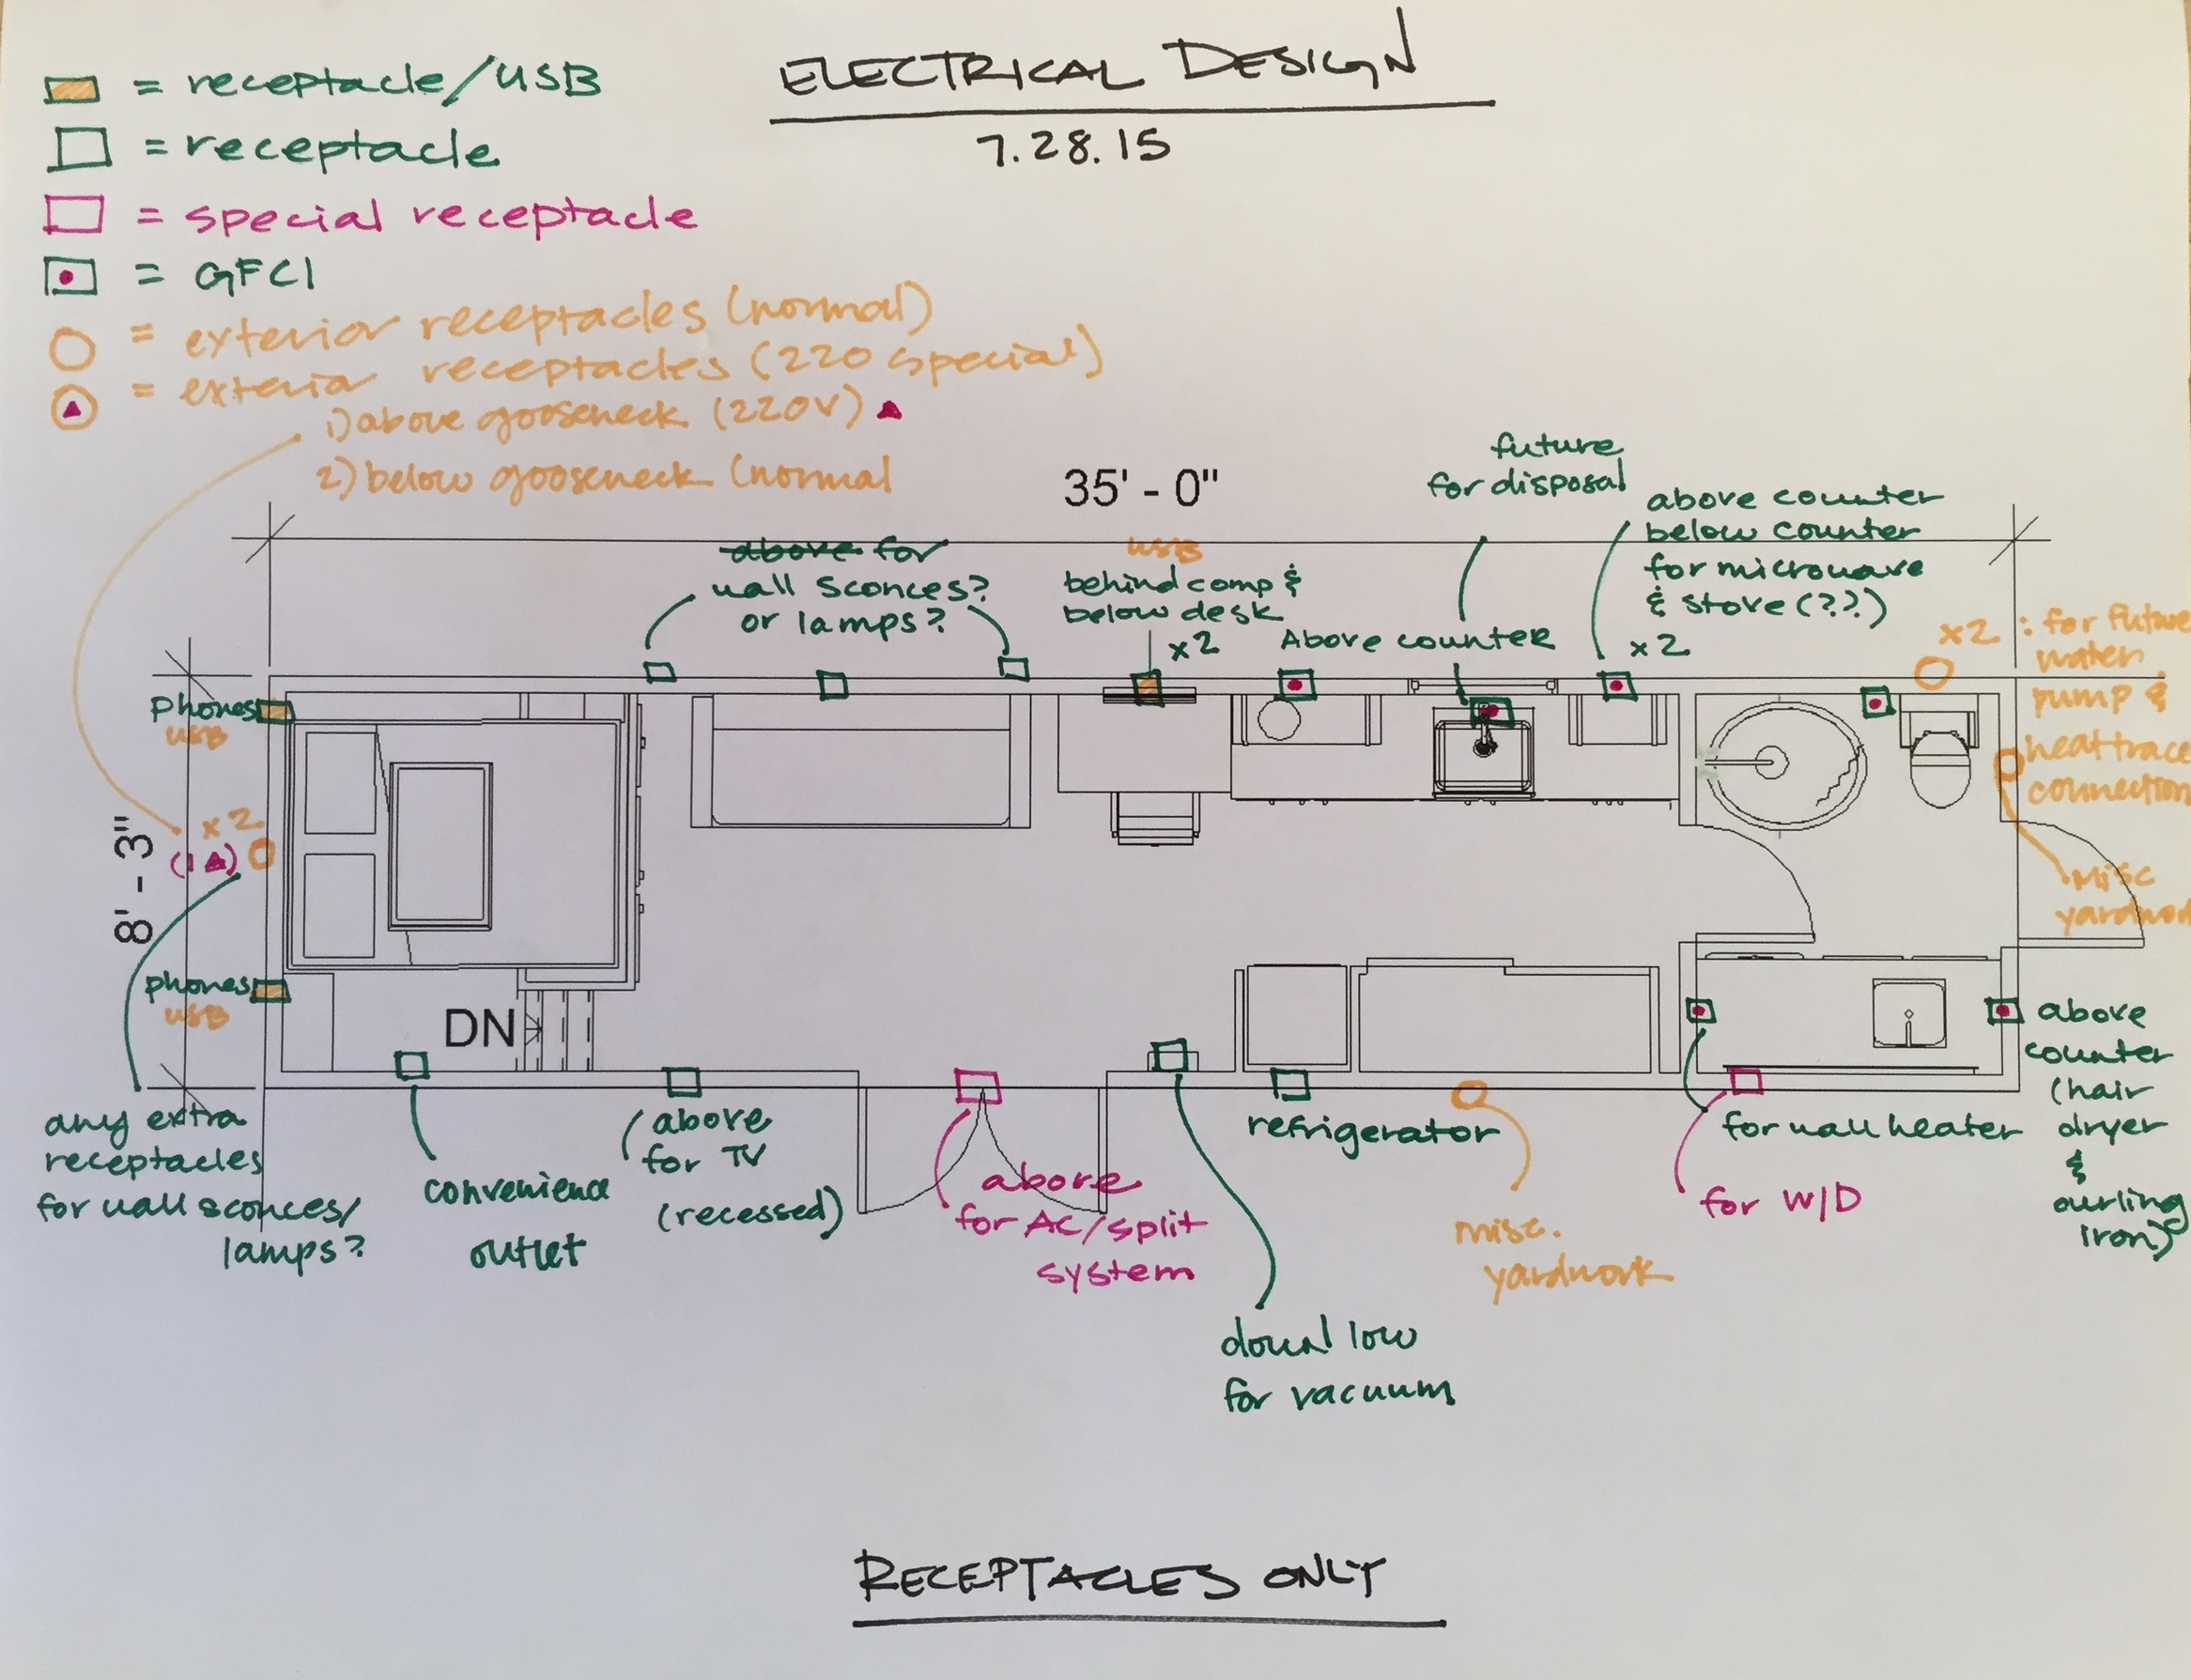 ELECTRICAL DESIGN
7.28.15
= receptacle/USB
= receptacle
= special receptacle
= GFCI
= exterior receptacles (normal)
= exterior receptacles (220 special)
1) above gooseneck (220V)
2) below gooseneck (normal
35' - 0"
8' - 3"
above for
wall sconces?
or lamps?
USB
behind comp &
below desk
x2
Above counter
future
for disposal
above counter
below counter
for microwave
& stove (??)
x2
x2 : for future
water
pump &
heat trace
connection
misc
phones
USB
x2
(1)
phones
USB
DN
any extra
receptacles
for wall sconces/
lamps?
convenience
outlet
above
for TV
(recessed)
above
for AC/split
system
down low
for vacuum
refrigerator
misc.
yardwork
for wall heater
for W/D
above
counter
(hair
dryer
&
curling
iron)
RECEPTACLES ONLY